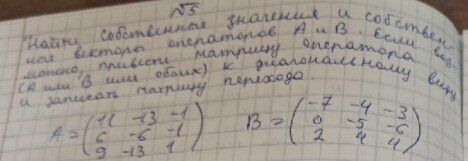 №5
Найти собственные значения и собствен-
ные векторы операторов A и B. Если воз-
можно, привести матрицу оператора
(A или B или обоих) к диагональному виду
и записать матрицу перехода.
A = (11 -13 -1
6 -6 -1
9 -13 1)
B = (-7 -4 -3
0 -5 -6
2 4 4)